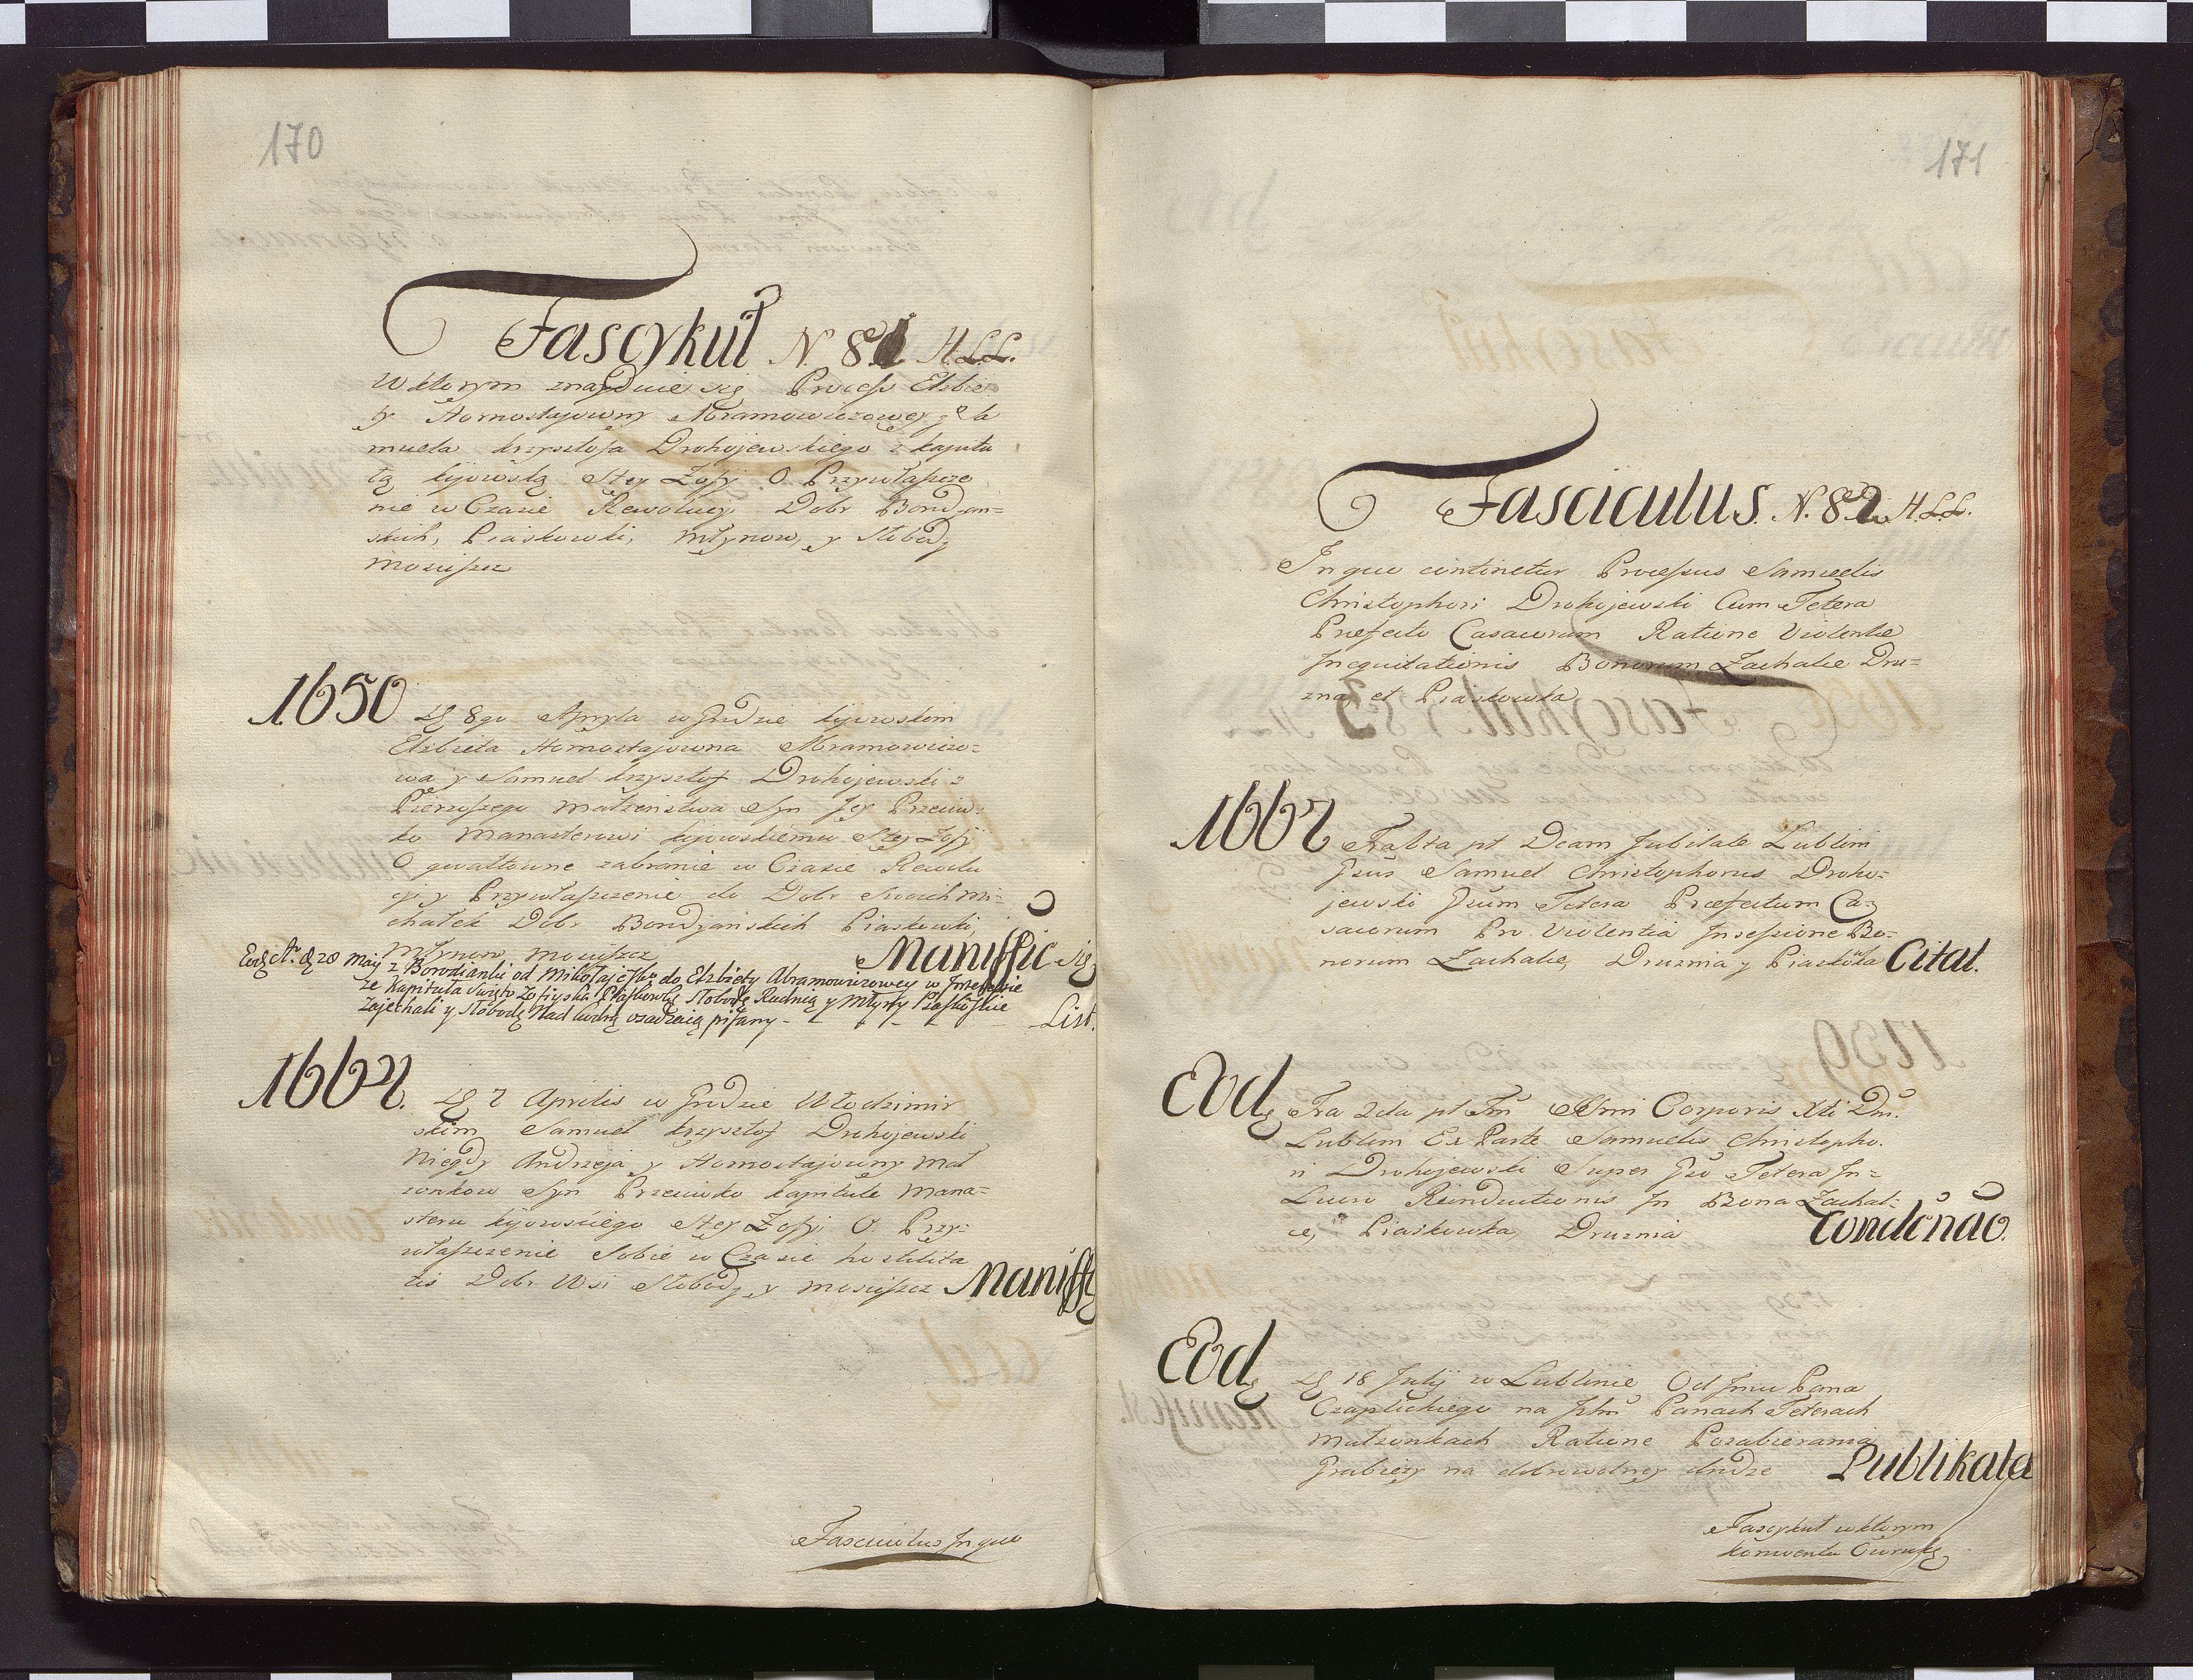 170
Fascykuł N. 81 H.L.L.
W ktorym znayduie się Process Elzbie
ty Hornostajowny Abramowiczowey y Sa
muela krzysztofa Drohojewskiego z kapitu
łą kijowską Stey Zofij O Przywłaszcze
nie w Czasie Rewolucyi Dobr Bondzan=
skich, Piaskowki, młynow, y Słobody
mosciszcz
1650 D. 8go Apryla w Grodzie kijowskim
Elzbieta Hornostajowna Abramowiczo=
wa y Samuel krzysztof Drohojewski z
Pierwszego małzenstwa Syn Jey Przeciw=
ko Manasterowi kijowskiemu Stey Zofij
O gwałtowne zabranie w Czasie Rewolu
cyi y Przywłaszczenie do Dobr Swoich Mi=
chałek Dobr Bondzanskich Piaskowki,
Młynow mosciszcz Maniffic
Eod. A. D. 28 Maij z Borodianki od Mikołaja do Elzbiety Abramowiczowey w Interessie
że kapituła Swięto Zofiyska Piaskowkę Słobodę Rudnią y Młyny Piaskowskie
Zajechali y Słobodę nad Zudrą osadzaią pisany - - - - - List.
1662. D. 2 Aprilis w Grodzie Włodzimir
skim Samuel krzysztof Drohojewski
Niegdy Andrzeja y Hornostajowny mał
zonkow Syn Przeciwko kapitule Mana=
steru kijowskiego Stey Zofij O Przy=
właszczenie Sobie w Czasie hostilita
tis Dobr Wsi Słobody, y mosciszcz Maniff
Fasciculus In quo
171
Fasciculus. N. 82 H.L.L.
In quo continetur Processus Samuelis
Christophori Drohojewski Cum Tetera
Præfecto Casacorum Ratione Violentæ
Inequitationis Bonorum Zachalie Dru=
znia et Piaskowka
1662 Frabta pt Dcam Jubilate Lublini
Gsus Samuel Christophorus Droho=
jewski Gsum Tetera Præfectum Ca=
sacorum Pro Violentia Insessione Bo=
norum Zachalie, Druznia y Piaskowka Citat.
Eod. Fra 2da pt Fm SSmi Corporis Xti Dni.
Lublini Ex Parte Samuelis Christopho.
ri Drohojewski Super Gso Tetera In=
Lucro Reinductionis In Bona Zachal=
ie, Piaskowka, Druznia Condēnāo.
Eod. D. 18 Julij w Lublinie Od Jmci Pana
Czaplickiego na Ichm Panach Teterach
Małzonkach Ratione Pozabierania
Grabiezy na dobrowolney drodze Publikata
Fascykuł w ktorym
konwentu Owruck.